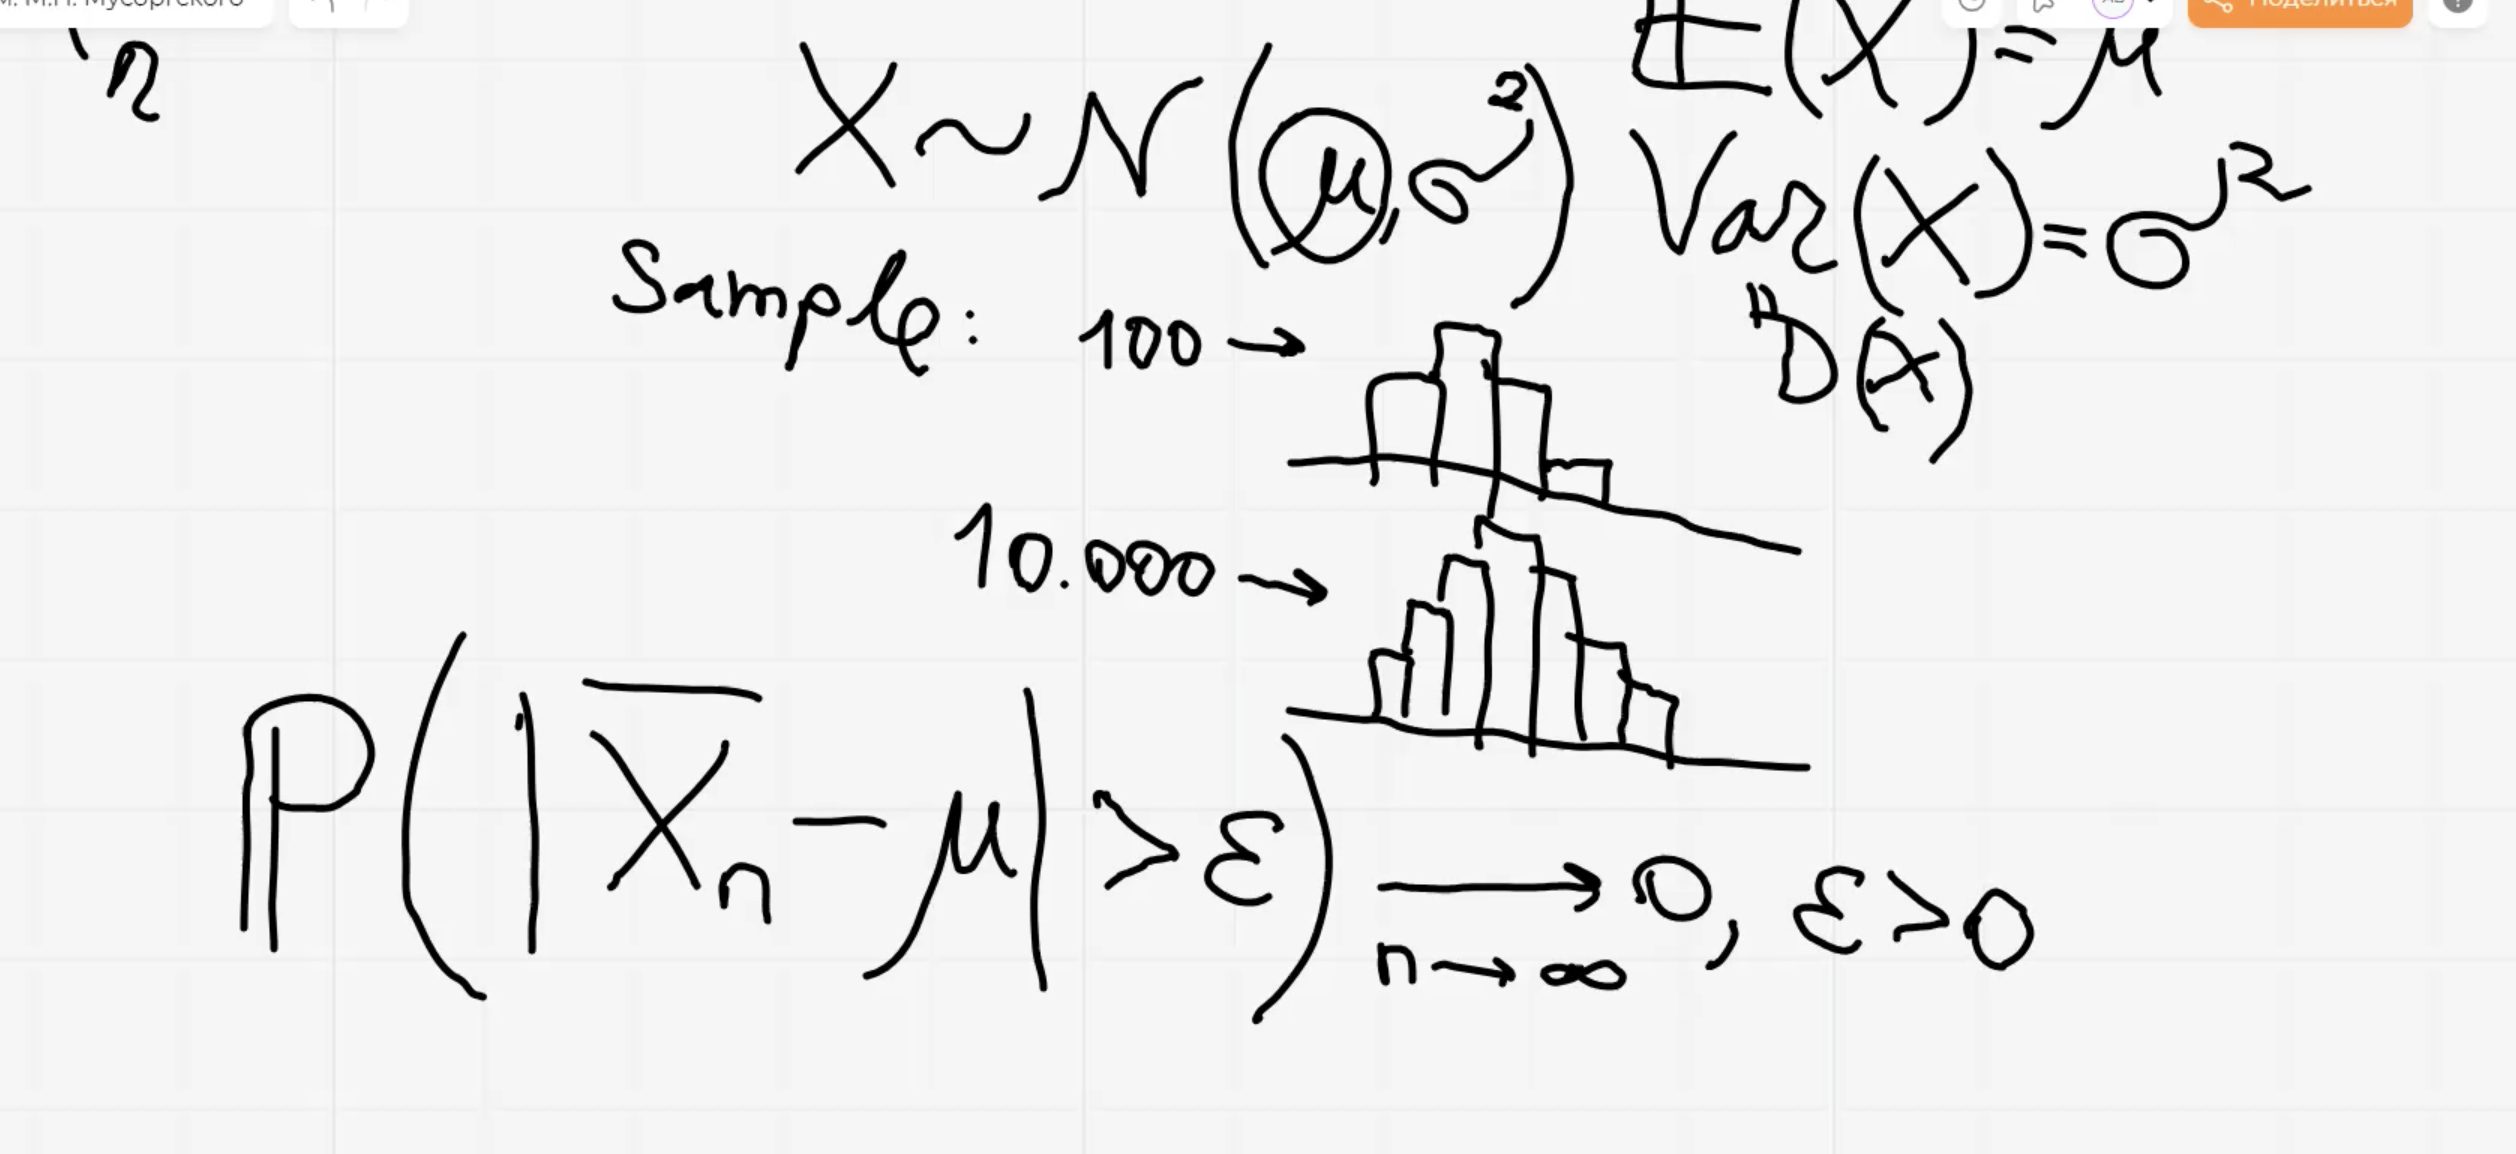 М. М.П. Мусоргского
Поделиться
n
X ~ N(μ, σ²)
E(X) = μ
Var(X) = σ²
"D(X)
Sample: 100 →
10.000 →
P(|X̅ₙ − μ| > ε) → 0, ε > 0
n → ∞